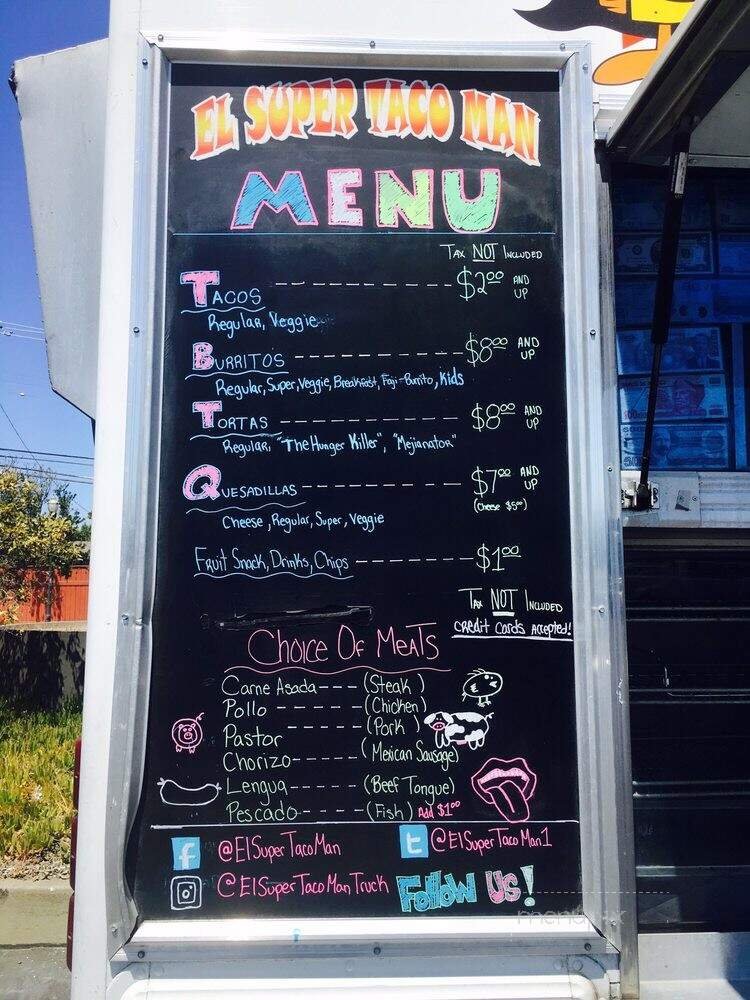 EL SUPER TACO MAN
MENU
TAX NOT INCLUDED
TACOS $2.00 AND UP
Regular, Veggie
BURRITOS $8.00 AND UP
Regular, Super, Veggie, Breakfast, Faji-Burrito, Kids
TORTAS $8.00 AND UP
Regular, "The Hunger Killer", "Mejianator"
QUESADILLAS $7.00 AND UP
(Cheese $5.00)
Cheese, Regular, Super, Veggie
Fruit Snack, Drinks, Chips $1.00
TAX NOT INCLUDED
credit cards accepted!
CHOICE OF MEATS
Carne Asada--- (Steak)
Pollo ---- (Chicken)
Pastor ---- (Pork)
Chorizo---- (Mexican Sausage)
Lengua---- (Beef Tongue)
Pescado---- (Fish) Add $1.00
f @ElSuperTacoMan t @ElSuperTacoMan1
@ElSuperTacoManTruck Follow Us!